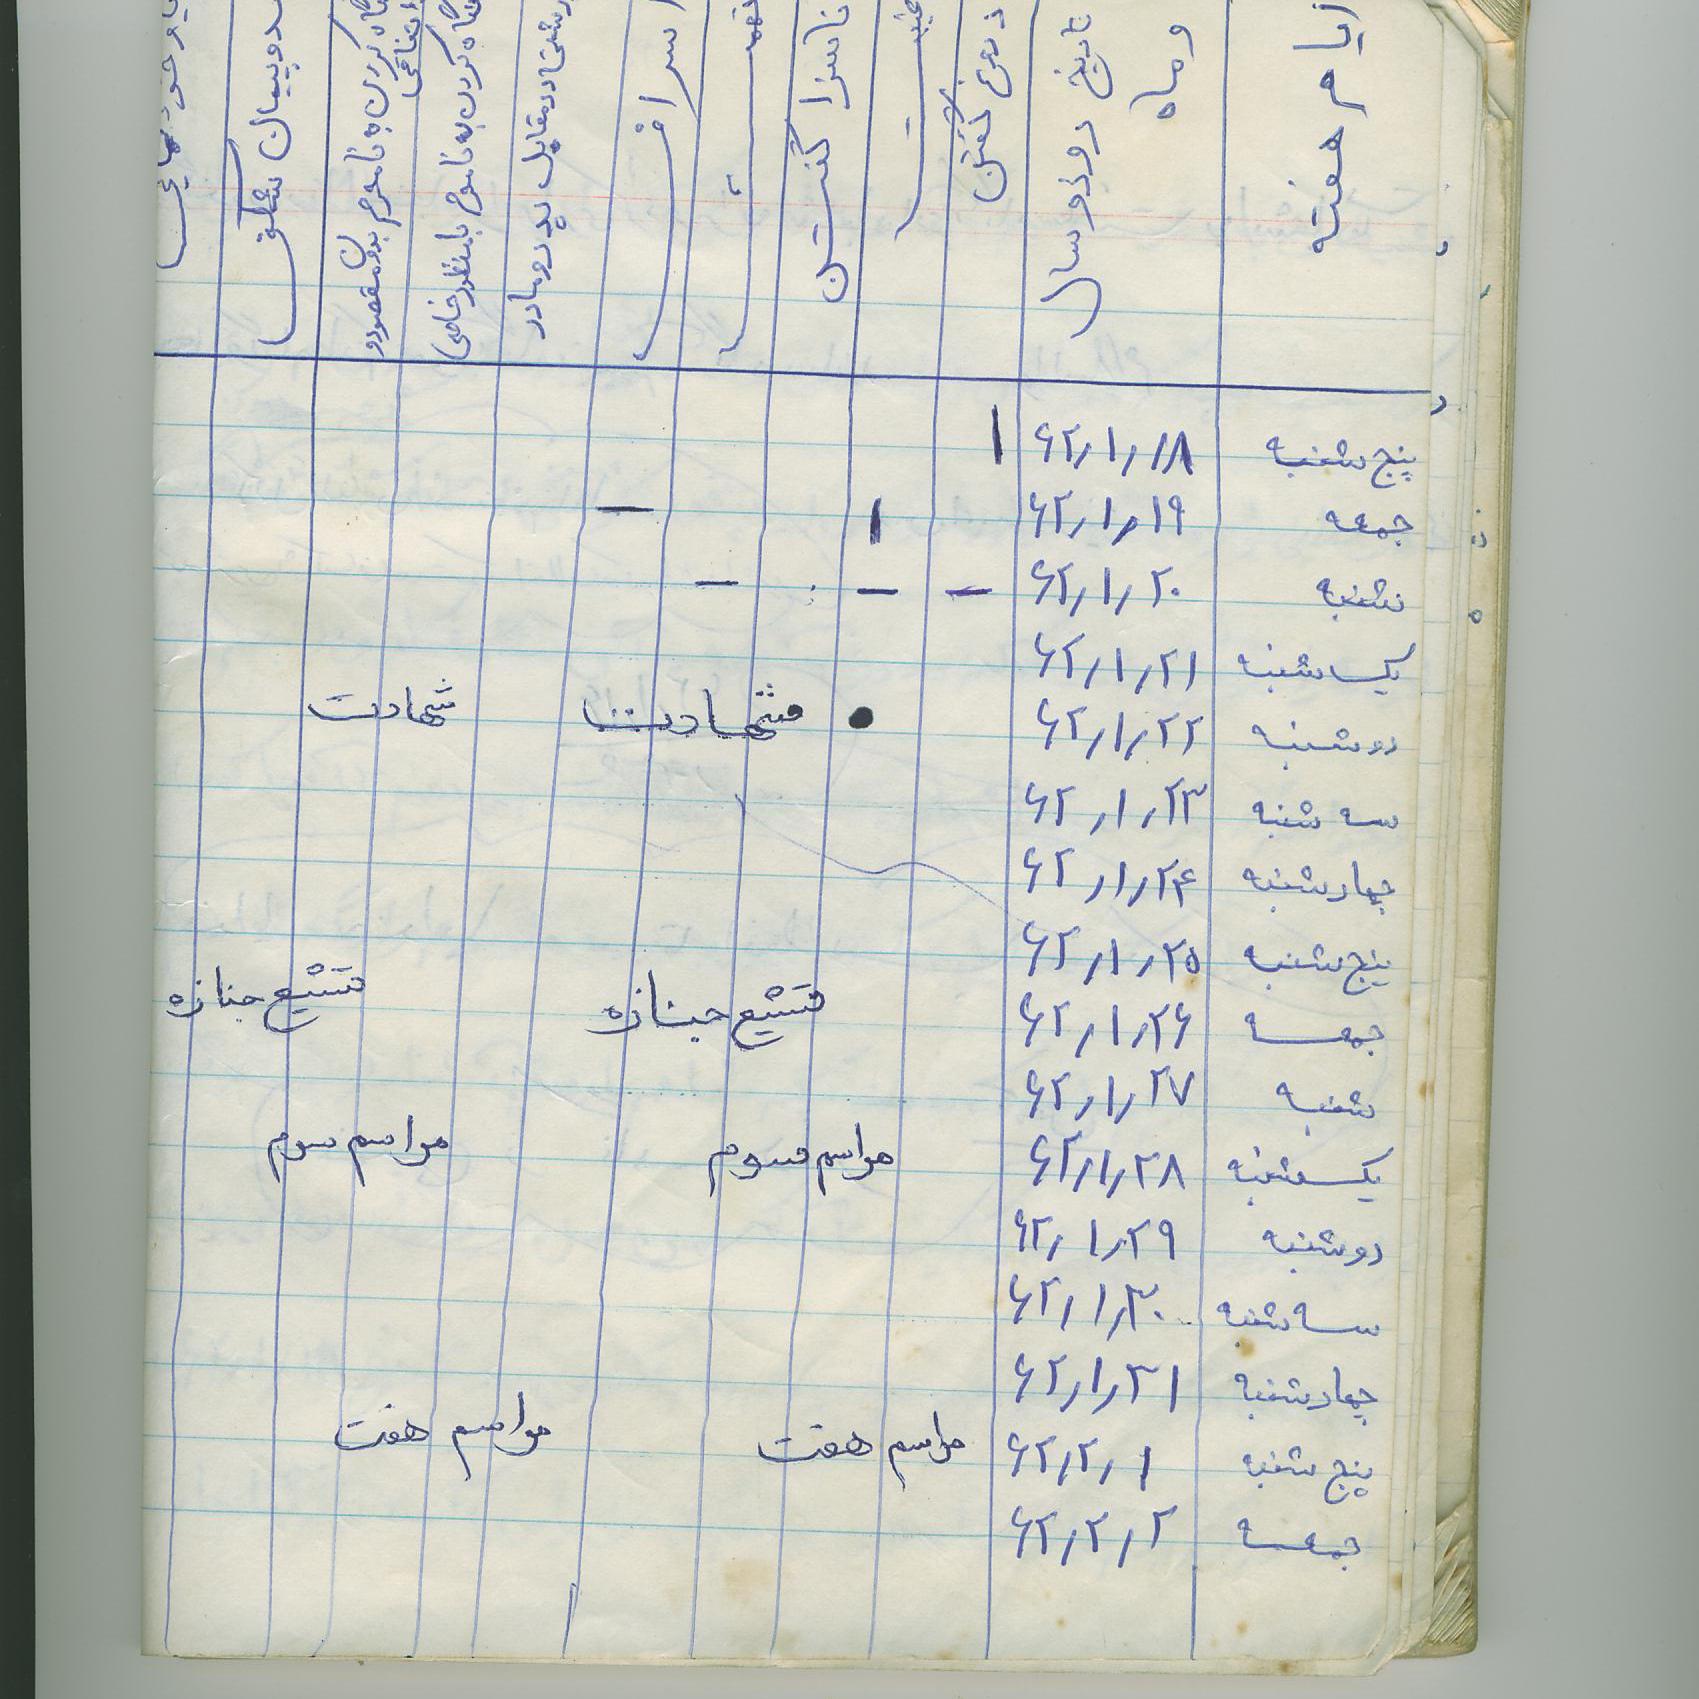 ایام هفته
تاریخ روز و سال و ماه
دروغ گفتن
غیبت
ناسزا گفتن
تهمت
اسراف
درشتی در مقابل پدر و مادر
نگاه کردن به نامحرم با منظور خاصی
نگاه کردن به نامحرم بدون مقصود و اتفاقی
عهد و پیمان شکنی
پنج شنبه ۶۲/۱/۱۸ ا
جمعه ۶۲/۱/۱۹ ا —
شنبه ۶۲/۱/۲۰ — — —
یکشنبه ۶۲/۱/۲۱
دوشنبه ۶۲/۱/۲۲ • شهادت شهادت
سه شنبه ۶۲/۱/۲۳
چهارشنبه ۶۲/۱/۲۴
پنج شنبه ۶۲/۱/۲۵
جمعه ۶۲/۱/۲۶ تشیع جنازه تشیع جنازه
شنبه ۶۲/۱/۲۷
یکشنبه ۶۲/۱/۲۸ مراسم سوم مراسم سوم
دوشنبه ۶۲/۱/۲۹
سه شنبه ۶۲/۱/۳۰
چهارشنبه ۶۲/۱/۳۱
پنج شنبه ۶۲/۲/۱ مراسم هفت مراسم هفت
جمعه ۶۲/۲/۲